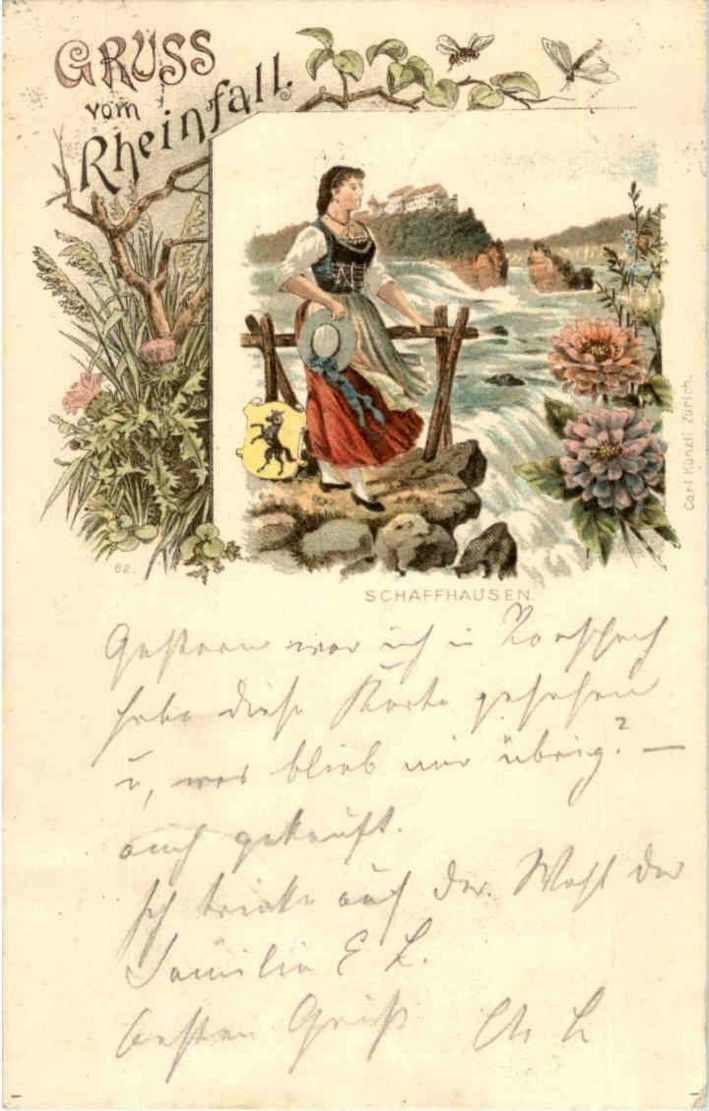 GRUSS
vom
Rheinfall.
Carl Künzli Zürich.
62.
SCHAFFHAUSEN.
Gestern war ich in Rorschach
habe diese Karte gesehen
u, was blieb mir übrig? —
auch gekauft.
Ich trinke auf der Wohl der
Familie E L.
besten Gruß Ch L